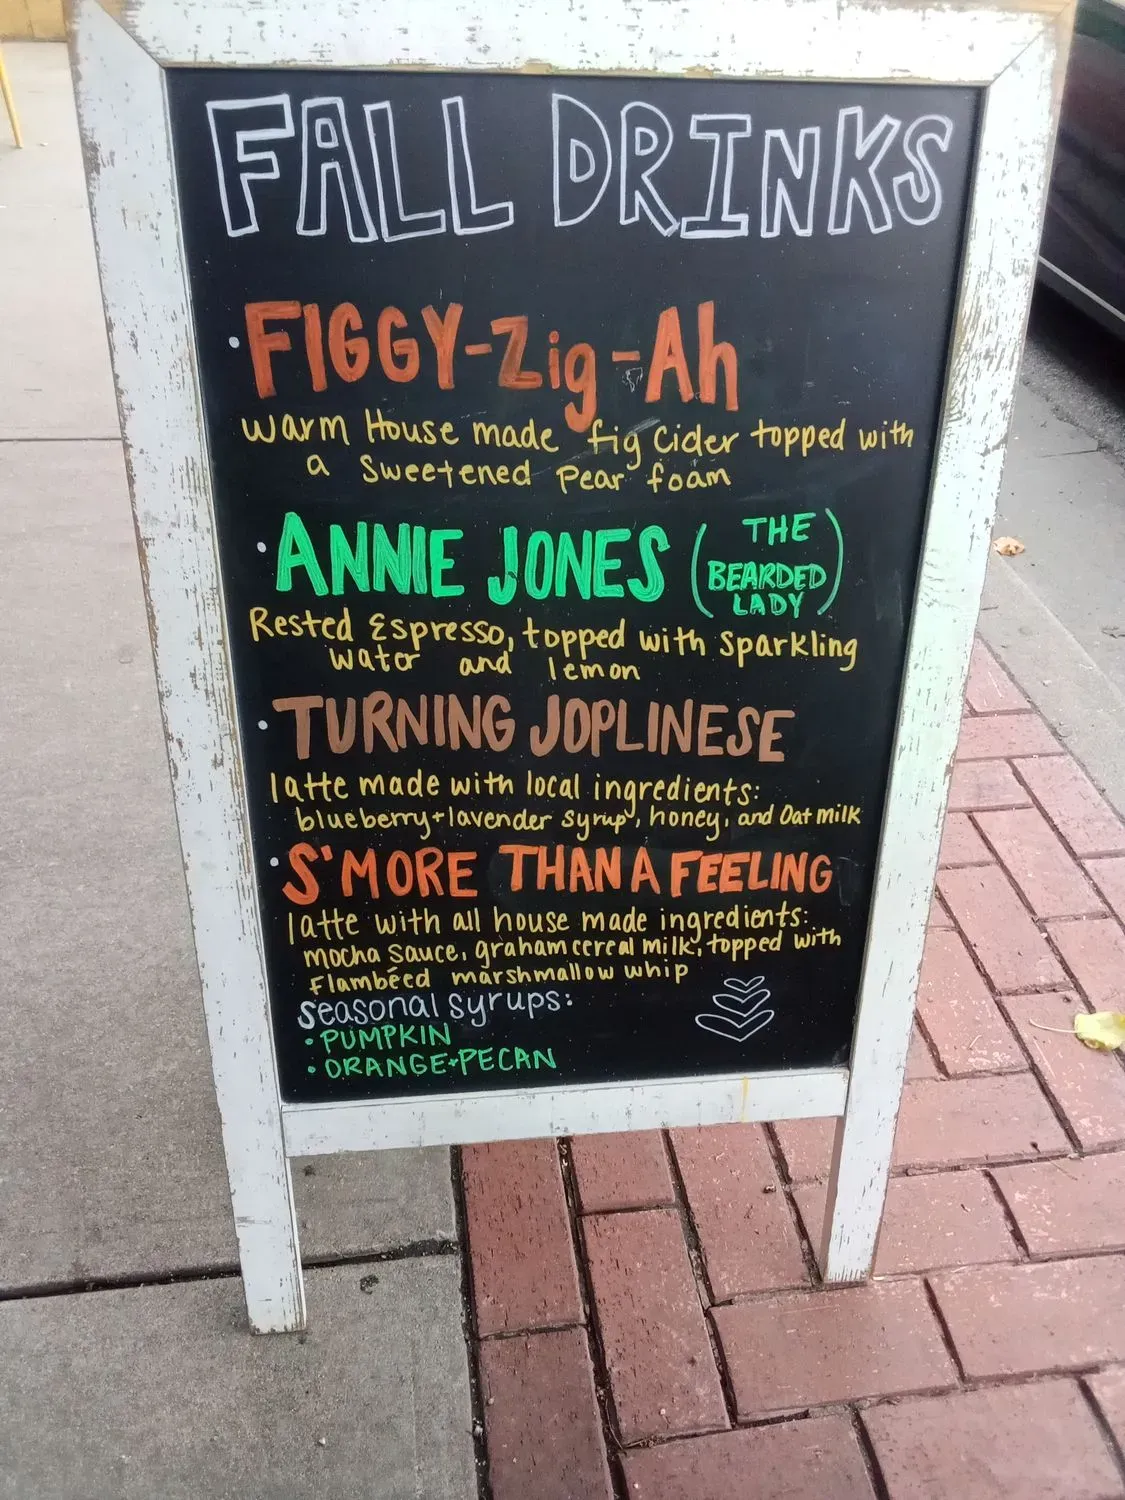 FALL DRINKS
• FIGGY-Zig-Ah
warm House made fig cider topped with
a sweetened pear foam
• ANNIE JONES (THE BEARDED LADY)
Rested Espresso, topped with sparkling
water and lemon
• TURNING JOPLINESE
latte made with local ingredients:
blueberry+lavender syrup, honey, and Oat milk
• S'MORE THAN A FEELING
latte with all house made ingredients:
mocha sauce, graham cereal milk, topped with
flambéed marshmallow whip
seasonal syrups:
• PUMPKIN
• ORANGE+PECAN